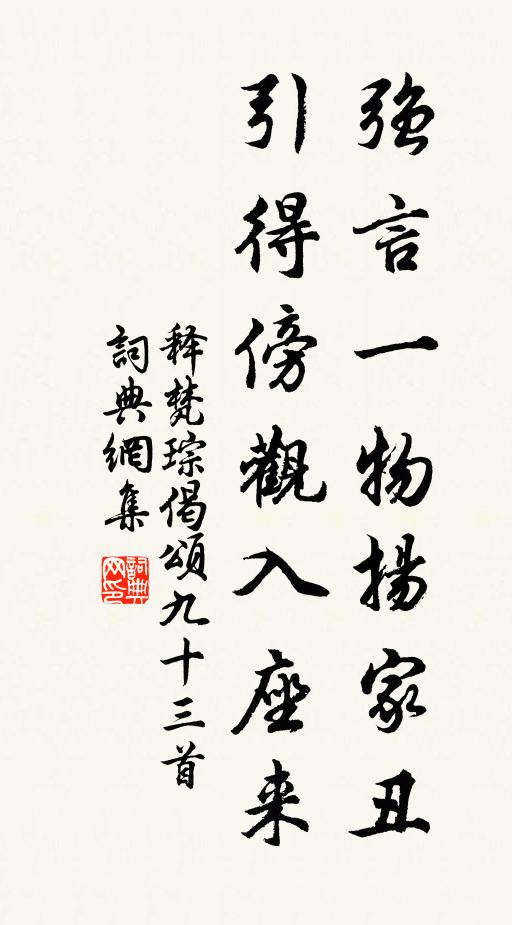 强言一物揚家丑
引得傍觀入座来
释梵琮偈頌九十三首
詞典網集
詞典网印